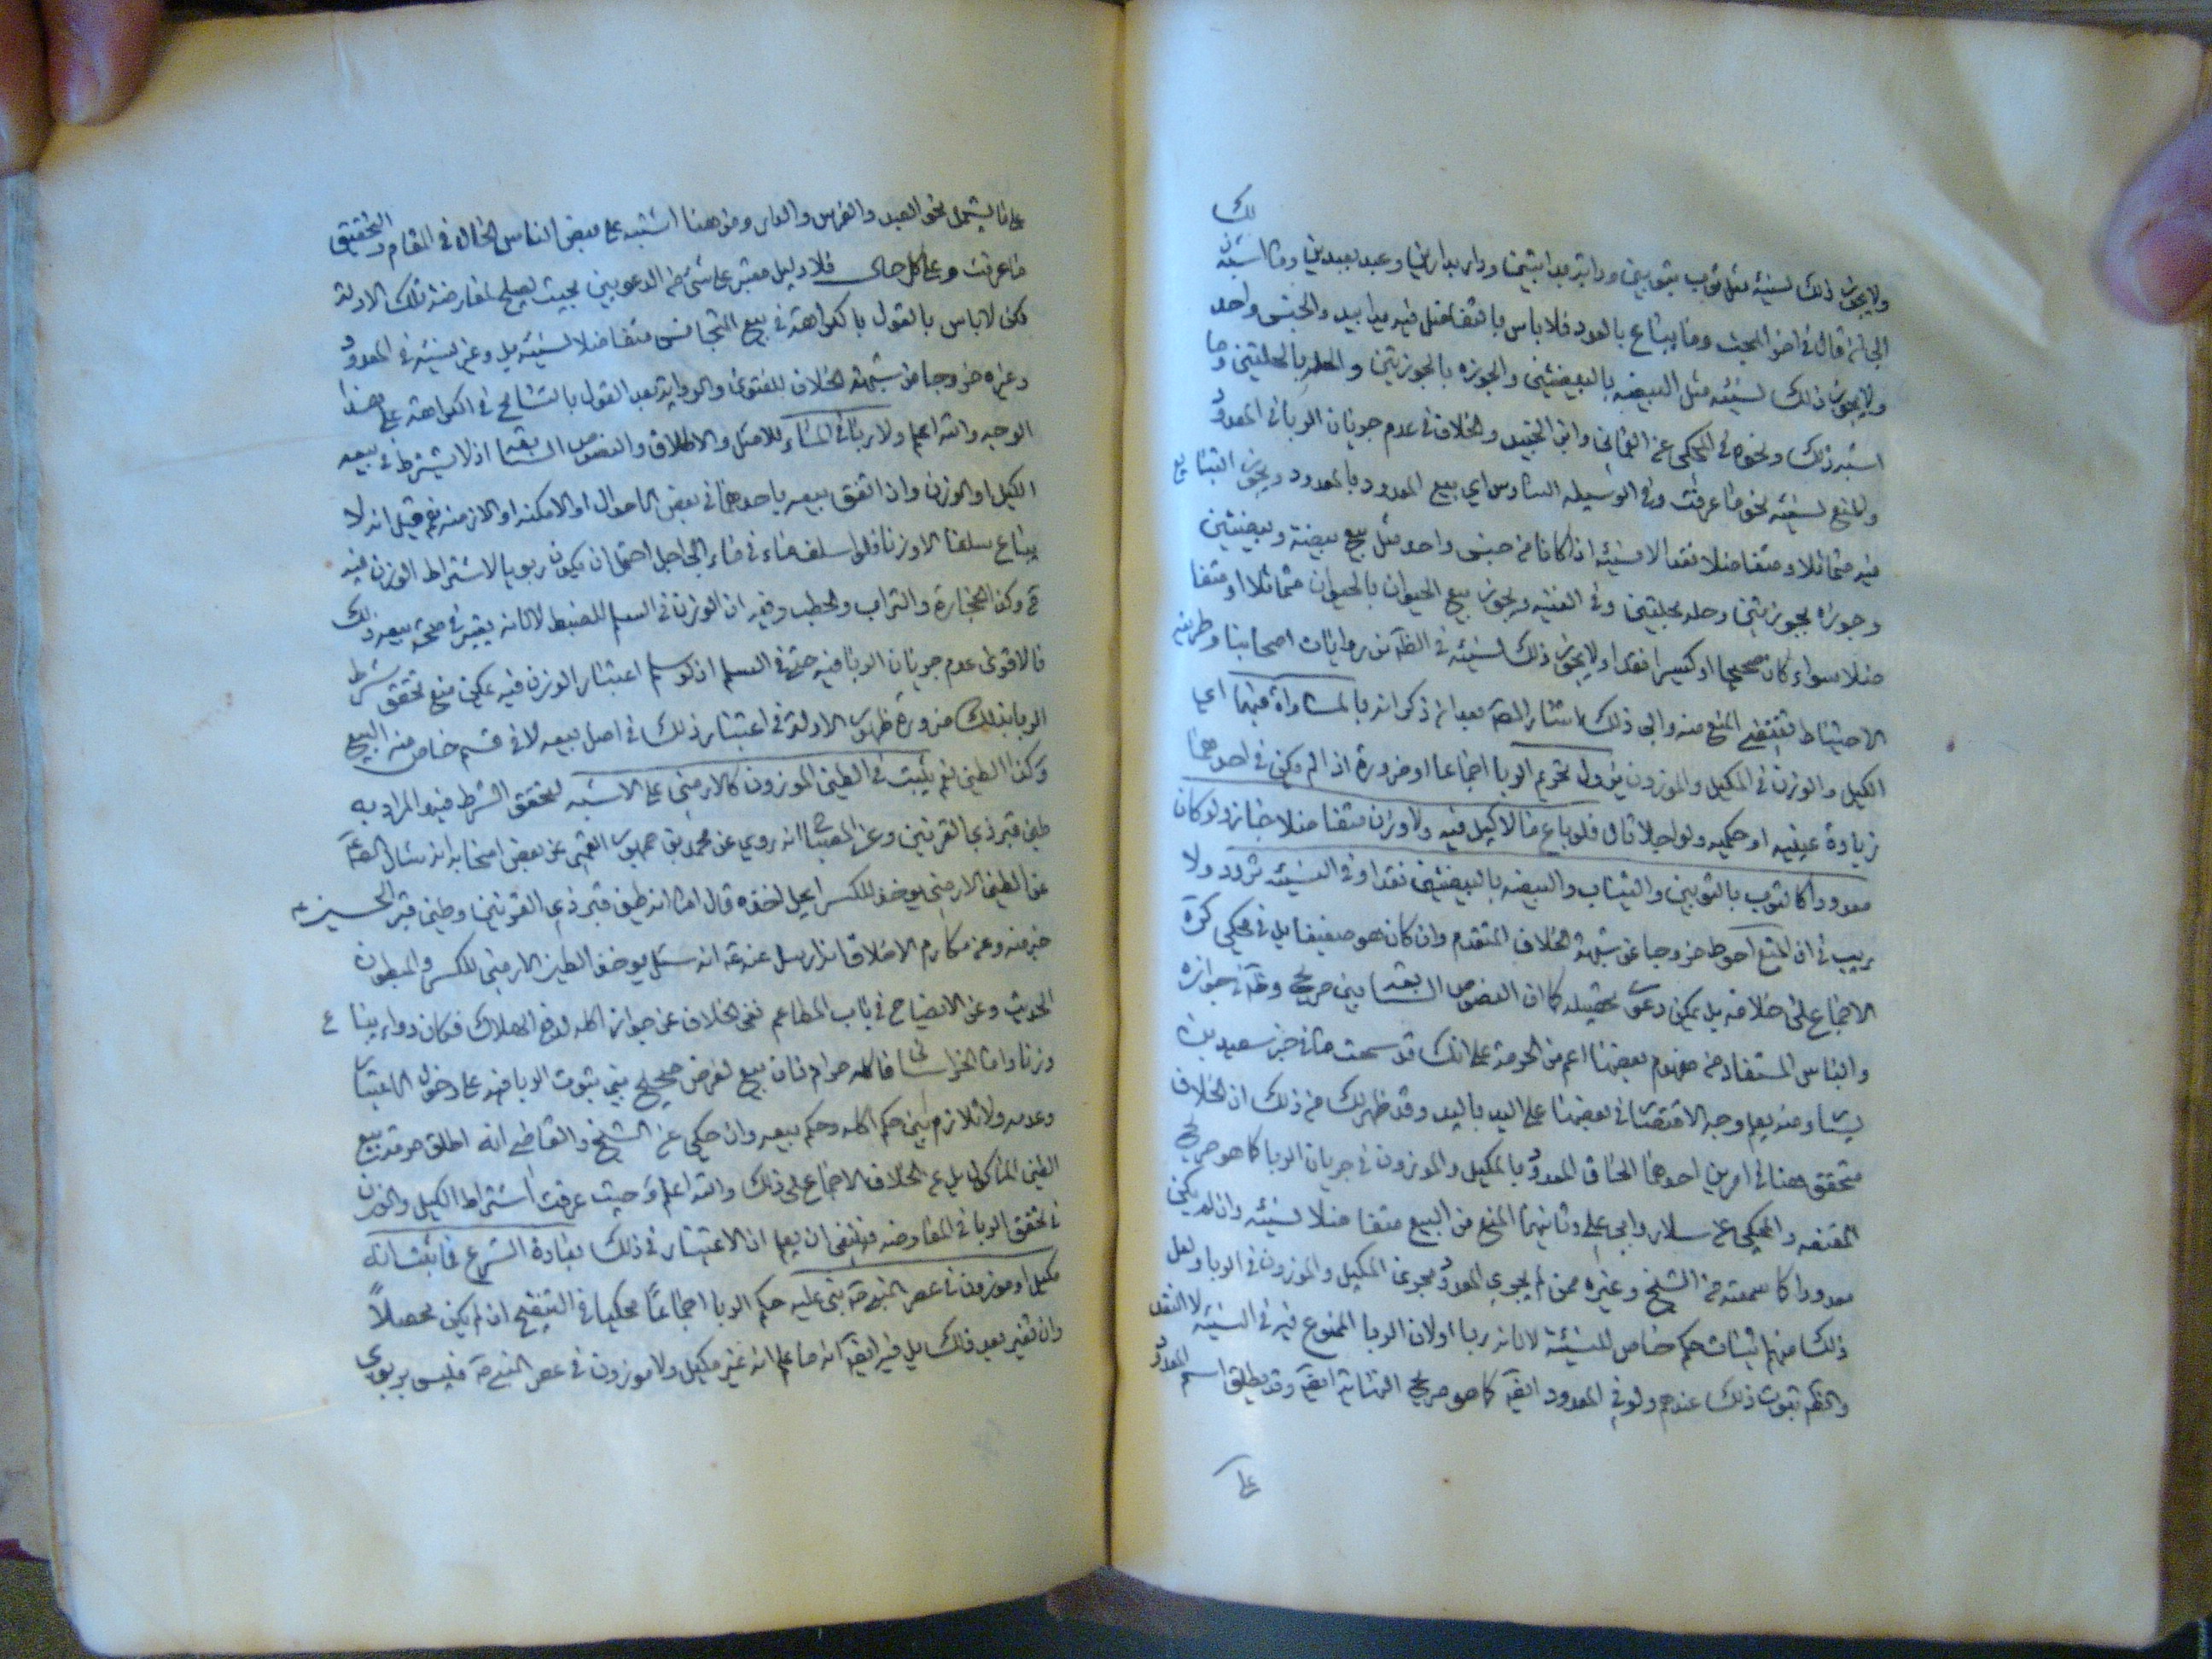 لك
ولا يجوز ذلك نسيئه مثل ثوب بثوبين ودابة بدابتين ودار بدارين وعبد بعبدين وما اشبه
الى ان قال في اخر البحث وما يباع بالعدد فلا باس بالتفاضل فيه يدا بيد والجنس واحد
ولا يجوز ذلك نسيئه مثل البيضه بالبيضتين والجوزه بالجوزتين والحله بالحلتين وما
اشبه ذلك ونحوه في المحكي عن العماني وابن الجنيد والخلاف في عدم جريان الربا في المعدود
والمنع نسيئه نحو ما عرفت وفي الوسيله السادس اي بيع المعدود بالمعدود ويجوز التبايع
فيه متماثلا ومتفاضلا نقدا لا نسيئه اذا كانا من جنس واحد مثل بيع بيضة وبيضتين
وجوزه بجوزتين وحله بحلتين وفي الغنيه ويجوز بيع الحيوان بالحيوان متماثلا او متفا
ضلا سواء كان صحيحا او كسيرا نقدا ولا يجوز ذلك نسيئه في الظاهر من روايات اصحابنا وطريقه
الاحتياط تقتضي المنع منه والى ذلك اشار المص بعد ان ذكر انه بالمساواة فيهما اي
الكيل والوزن في المكيل والموزون يزول تحريم الربا اجماعا او ضرورة اذا لم يكن في احدهما
زيادة عينيه او حكميه ولو اجلا قال فلو باع ما لا كيل فيه ولا وزن متفاضلا جاز ولو كان
معدودا كالثوب بالثوبين والثياب والبيضه بالبيضتين نقدا وفي النسيئه تردد ولا
ريب في ان المنع احوط خروجا عن شبهة الخلاف المتقدم وان كان هو ضعيفا بل في محكي كره
الاجماع على خلافه بل يمكن دعوى تحصيله كما ان النصوص السابقه بين صريح وظاهر في جوازه
والباس المستفاد من مفهوم بعضها اعم من الحرمة على انك قد سمعت ما في خبر سعيد بن
يسار ومنه يعلم وجه الاقتصار في بعضها على اليد باليد وقد ظهر لك من ذلك ان الخلاف
متحقق هنا في امرين احدهما الحاق المعدود بالمكيل والموزون في جريان الربا كما هو صريح
المقنعه والمحكي عن سلار وابي علي وثانيهما المنع من البيع متفاضلا نسيئه وان لم يكن
معدودا كما سمعته من الشيخ وغيره ممن لم يجري المعدود مجرى المكيل والموزون في الربا ولعل
ذلك منهم اثبات حكم خاص للنسيئة لا لانه ربا او لان الربا الممنوع فيه في النسيئه لا النقد
والظاهر ثبوت ذلك عندهم ولو في المعدود ايضا كما هو صريح ايضا وقد يطلق اسم المعدود
على
على ما يشمل نحو العبد والفرس والدار ومن هنا اشتبه على بعض الناس الحال في المقام والتحقيق
ما عرفت وعلى كل حال فلا دليل معتبر على شيء من الدعويين بحيث يصلح لمعارضة تلك الادلة
لكن لا باس بالقول بالكراهة في بيع المتجانس متفاضلا نسيئه بل وغير نسيئه في المعدود
وغيره خروجا من شبهة الخلاف للفتوى والرواية بعد القول بالتسامح في الكراهة على هذا
الوجه والله اعلم ولا ربا في الماء للاصل والاطلاق والنصوص السابقه اذ لا يشترط في بيعه
الكيل او الوزن وان اتفق بيعه باحدهما في بعض الاحوال او الامكنه او الازمنه نعم قيل انه لا
يباع سلفا الا وزنا فلو اسلف ماء في ماء الى اجل احتمل ان يكون ربويا لاشتراط الوزن فيه
ح وكذا الحجارة والتراب والحطب وفيه ان الوزن في السلم للضبط لا لانه يعتبر في صحة بيعه ذلك
فالاقوى عدم جريان الربا فيه حتى في السلم اذ لو سلم اعتبار الوزن فيه يمكن منع تحقق شرط
الربا بذلك ضرورة ظهور الادلة في اعتبار ذلك في اصل بيعه لا في قسم خاص منه البيع
وكذا الطين نعم يثبت في الطين الموزون كالارمني على الاشبه لتحقق الشرط فيه والمراد به
طين قبر ذي القرنين وعن المصباح انه روي عن محمد بن جمهور القمي عن بعض اصحابه انه سئل الصادق
عن الطين الارمني يوخذ للكسر ايحل اخذه قال اما انه طين قبر ذي القرنين وطين قبر الحسين ع
خير منه وعن مكارم الاخلاق انه ارسل عنه ع انه سئل يوخذ الطين الارمني للكسر والمبطون
الحديث وعن الايضاح في باب المطاعم نفي الخلاف عن جواز اكله لدفع الهلاك فكان دواء يباع
وزنا واما الخراساني فاكله حرام فان بيع لغرض صحيح بني ثبوت الربا فيه على دخول الاعتبار
وعدمه ولا تلازم بين حكم اكله وحكم بيعه وان حكي عن الشيخ والقاضي انه اطلق حرمة بيع
الطين الماكول بل عن الخلاف الاجماع على ذلك والله اعلم وحيث عرفت اشتراط الكيل والوزن
في تحقق الربا في المعاوضه فينبغي ان يعلم ان الاعتبار في ذلك بعادة الشرع فما ثبت انه
مكيل او موزون في عصر النبي ص بني عليه حكم الربا اجماعا محكيا في التنقيح ان لم يكن محصلا
وان تغير بعد ذلك بل فيه ايضا انه ما علم انه غير مكيل ولا موزون في عصر النبي ص فليس بربوي